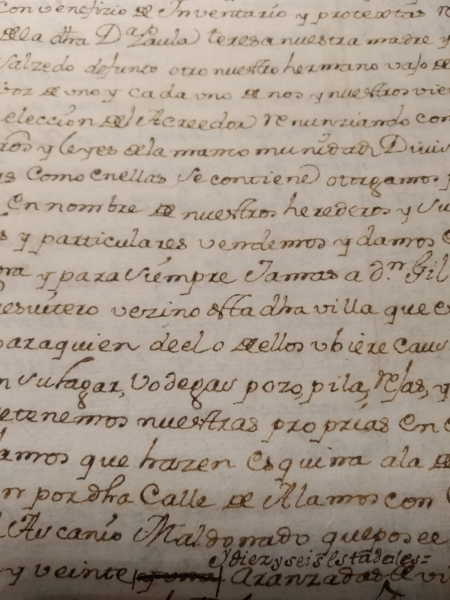 con venefizio de Inventario y protextas
dela dha Da. Paula teresa nuestra madre y
Salzedo defunto otro nuestro hermano vajo de
por de uno y cada uno de nos y nuestros vie
elección del Acreedor renunziando con
leyes dela mancomunidad Divis
Como enellas Se contiene otorgamos
En nombre de nuestros herederos y su
y particulares vendemos y damos
ora y para Siempre Jamas a dn. Gil
resvitero vezino desta dha villa que
para quien de el o de ellos ubiere caus
n su lagar, Vodegas pozo, pila, rejas, y
etenemos nuestras proprias en
lamos que hazen esquina ala de
n por dha Calle de Alamos con
l Ascanio Maldonado que posee
y diez y seis estadales=
y veinte Aranzadas de vi